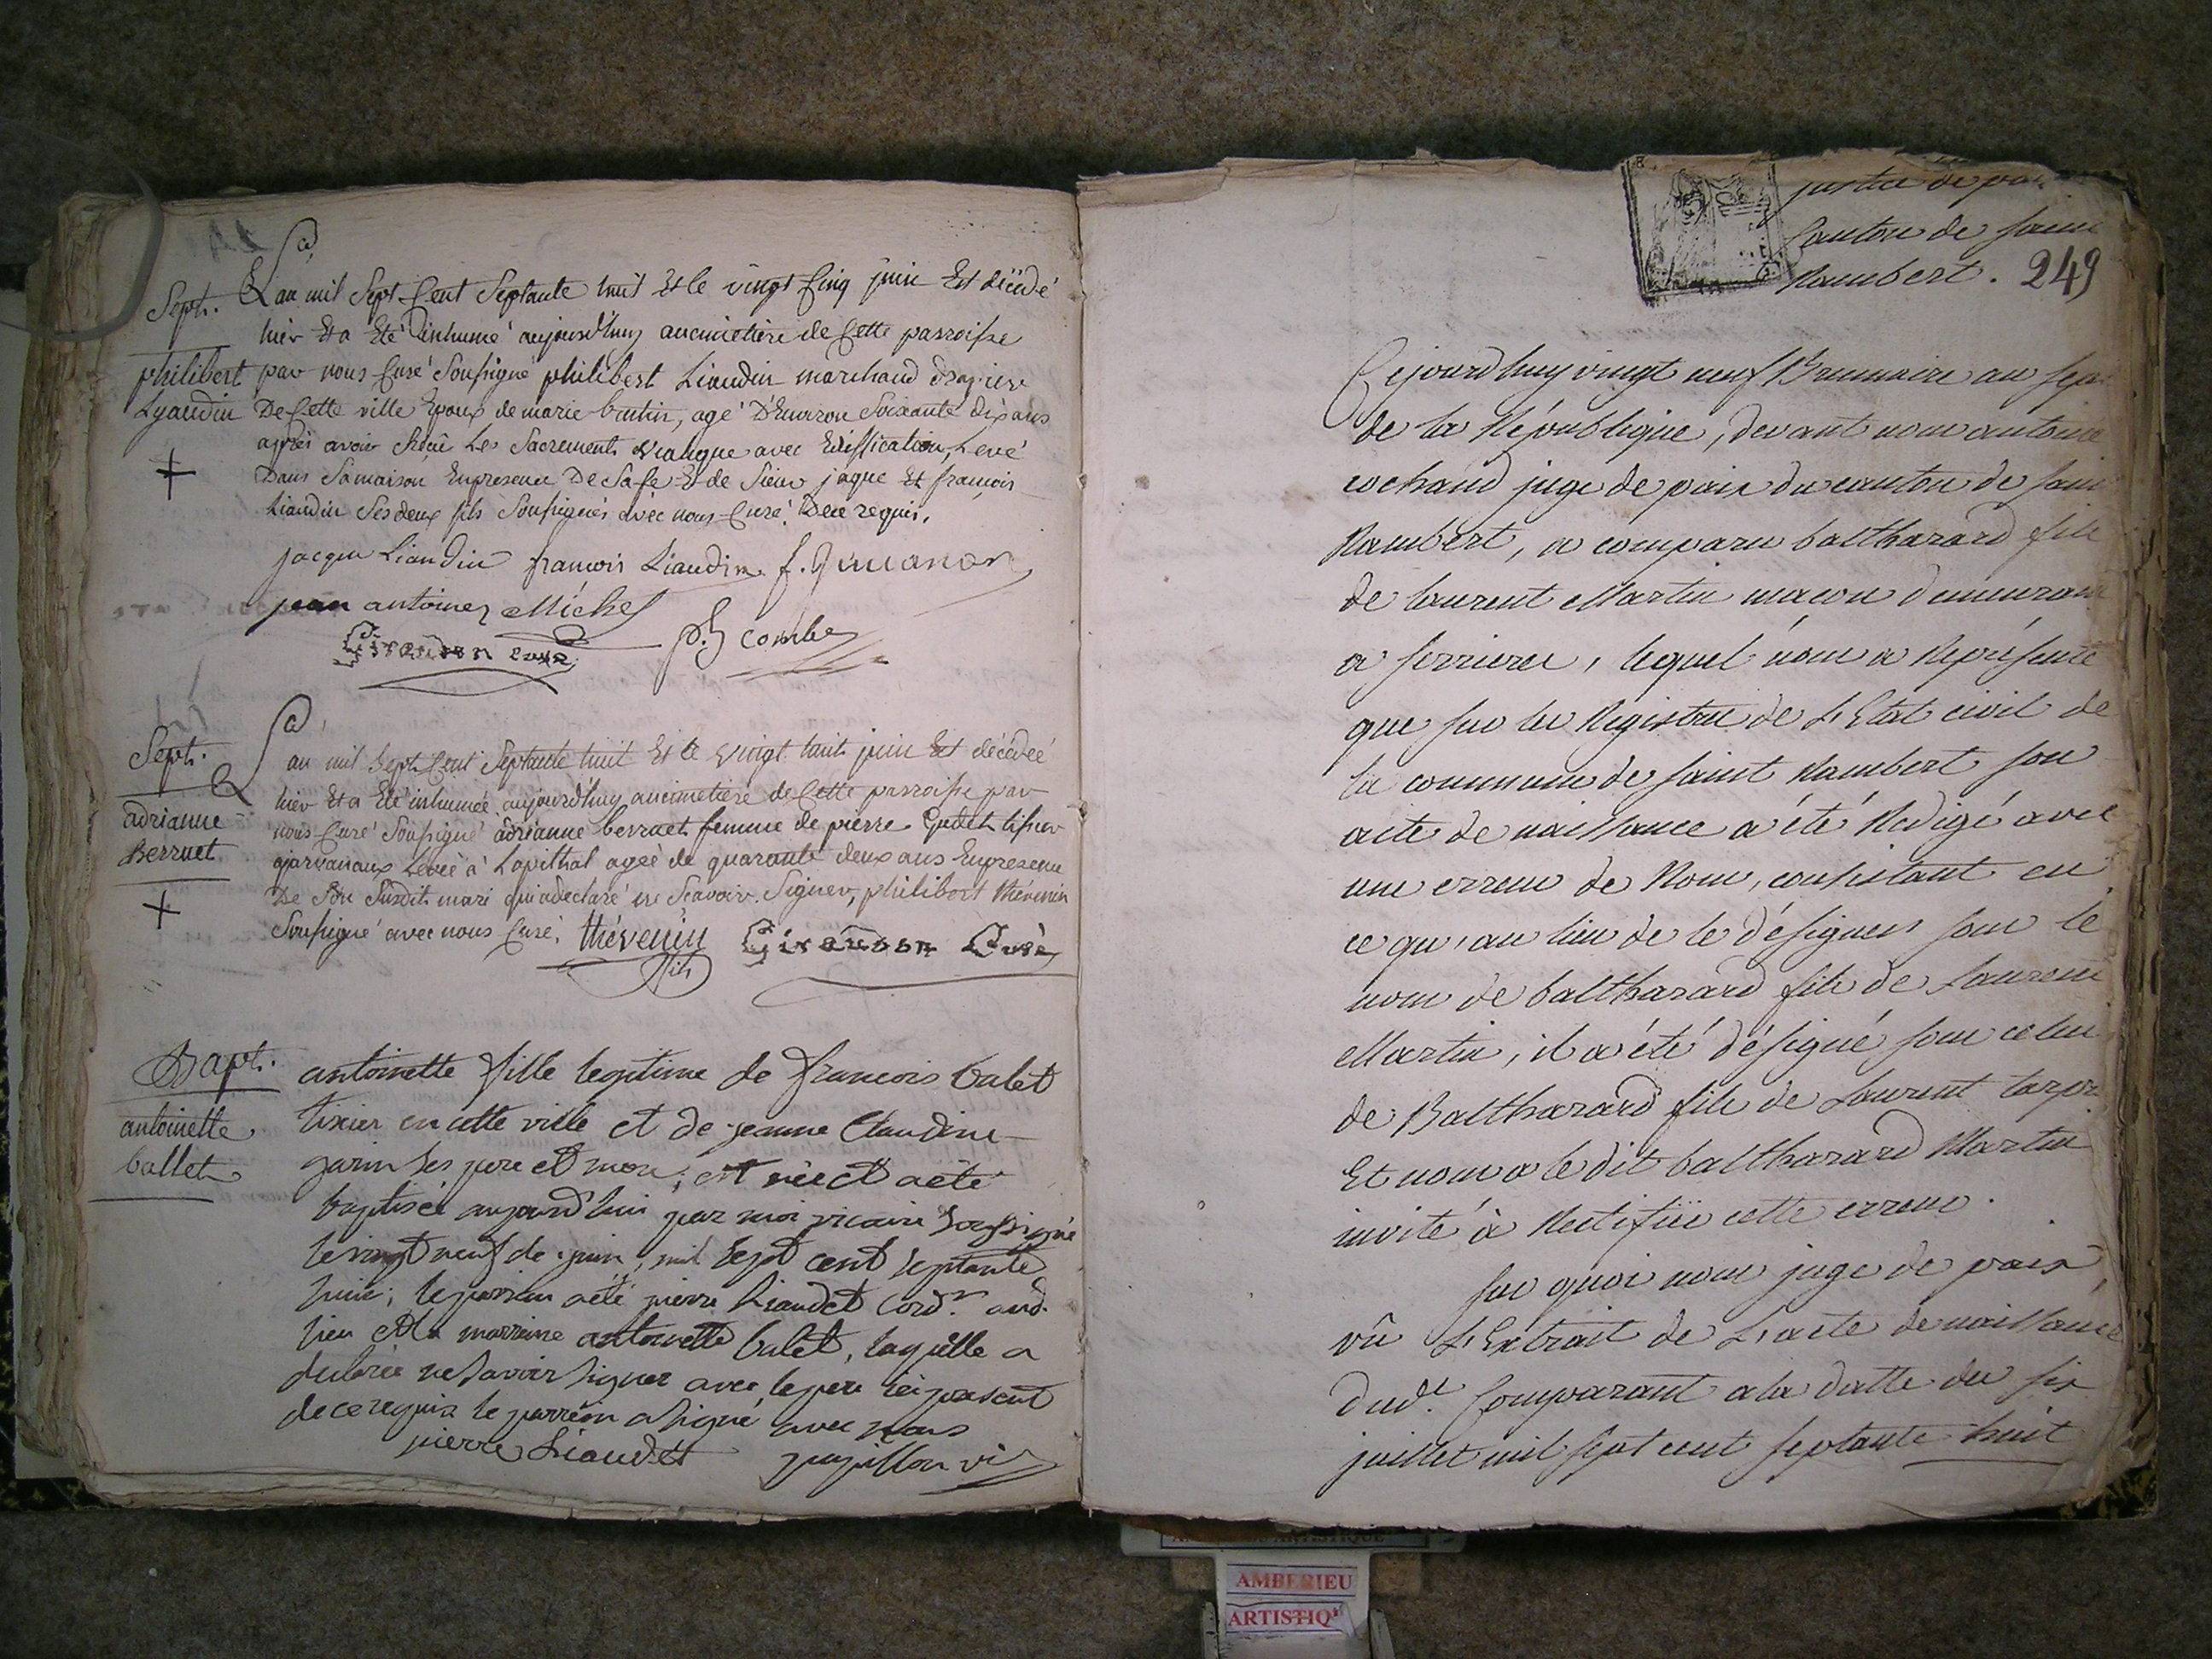 Sept.
philibert
Lyaudin
L'an mil Sept Cent Septante huit Et le vingt Cinq juin Est décédé
hier Et a Eté inhumé aujourd'huy au cimetière de Cette parroisse
par nous Curé Soussigné philibert Liaudin marchand drapier
De Cette ville Epoux de marie butin, agé D'Environ Soixante dix ans
après avoir Reçu Les Sacrements avec Edification, Levé
Dans Sa maison En presence De Sa fe Et de Sieur jaque Et françois
Liaudin Ses deux fils Soussignés avec nous Curé De ce requis.
jacque Liaudin françois Liaudin f.
jean antoine Michel
Giraudon curé ph combe
Sept.
adrianne
Berruet
L'an mil Sept Cent Septante huit Et le vingt huit juin Est décédée
hier Et a Eté inhumée aujourd'huy au cimetière de Cette parroisse par
nous Curé Soussigné adrianne berruet femme de pierre Gudet tissier
Levée à Lopithal agée de quarante deux ans En presence
De Son Susdit mari qui a declaré ne Scavoir Signer, philibert thévenin
Soussigné avec nous Curé. thévenin Giraudon Curé
fils
Bapt.
antoinette
ballet
antoinette fille legitime de francois balet
tixier en cette ville et de jeanne Claudine
garin ses pere et mere, est née et a été
baptisée aujourd'hui par moi vicaire soussigné
le vingt neuf de juin, mil sept cent septante
huit; le parrein a été pierre Liaudet cordr. aud.
lieu et la marreine antoinette balet, laquelle a
declarée ne savoir signer avec le pere ici present
de ce requis le parrein a signé avec nous
pierre Liaudet papillon vic
justice de paix
Canton de Saint
Rambert. 249
Cejourd'huy vingt neuf Brumaire an sept
de la République, devant nous antoine
cochand juge de paix du canton de Saint
Rambert, a comparu balthazard fils
de laurent Martin maçon demeurant
a serrieres, lequel nous a Représenté
que sur les Registres de L'Etat civil de
la commune de saint Rambert son
acte de naissance a été Redigé avec
une erreur de Nom, consistant en
ce qu'au lieu de le désigner sous le
nom de balthazard fils de Laurent
Martin, il a été désigné sous celui
de Balthazard fils de Laurent
Et nous a le dit balthazard Martin
invité à Rectifier cette erreur.
Sur quoi nous juge de paix,
vû L'Extrait de L'acte de naissance
dudt. Comparant a la datte du six
juillet mil sept cent septante huit
AMBERIEU
ARTISTIQ